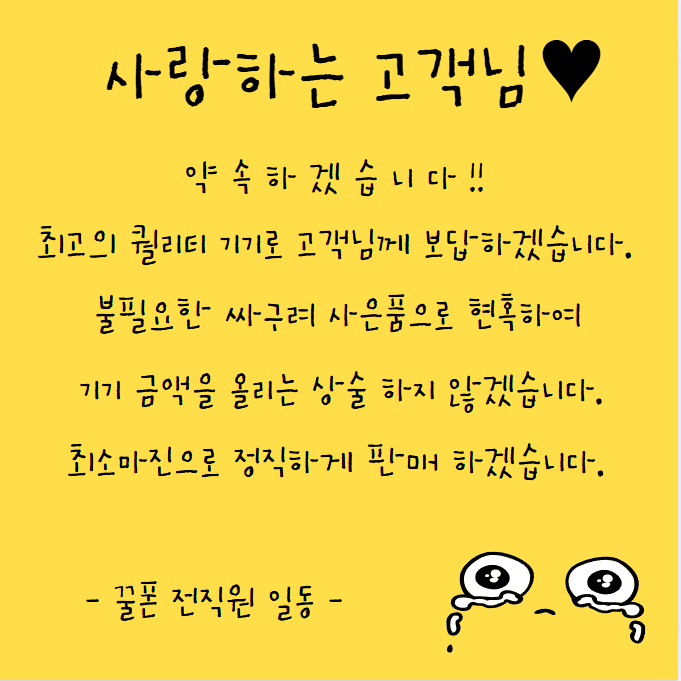 사랑하는 고객님♥
약속하겠습니다!!
최고의 퀄리티 기기로 고객님께 보답하겠습니다.
불필요한 싸구려 사은품으로 현혹하여
기기 금액을 올리는 상술 하지 않겠습니다.
최소마진으로 정직하게 판매 하겠습니다.
- 꿀폰 전직원 일동 -